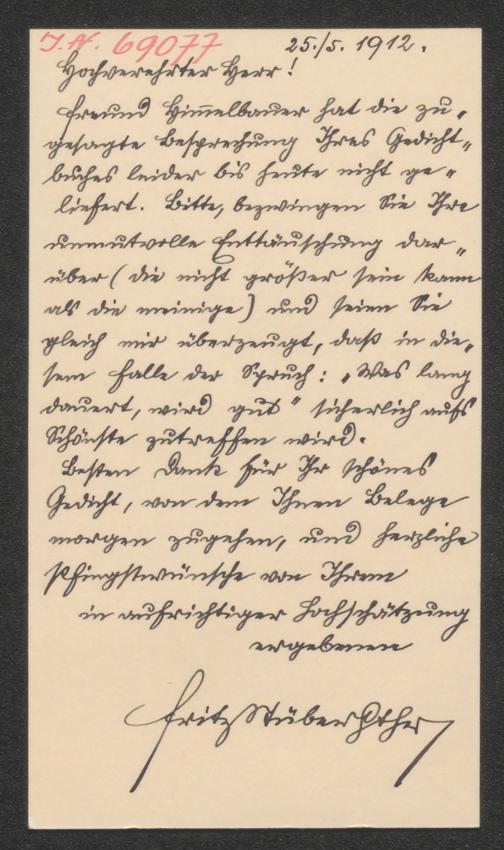 I.N. 69077
25./5. 1912.
Hochverehrter Herr!
Freund Himmelbauer hat die zu„
gesagte Besprechung Ihres Gedicht„
buches leider bis heute nicht ge„
liefert. Bitte, bezwingen Sie Ihre
unmutvolle Enttäuschung dar„
über (die nicht größer sein kann
als die meinige) und seien Sie
gleich mir überzeugt, daß in die„
sem Falle der Spruch: „Was lang
dauert, wird gut“ sicherlich aufs
Schönste zutreffen wird.
Besten Dank für Ihr schönes
Gedicht, von dem Ihnen Belege
morgen zugehen, und herzliche
Pfingstwünsche von Ihrem
in aufrichtiger Hochschätzung
ergebenen
Fritz Stüber Gther